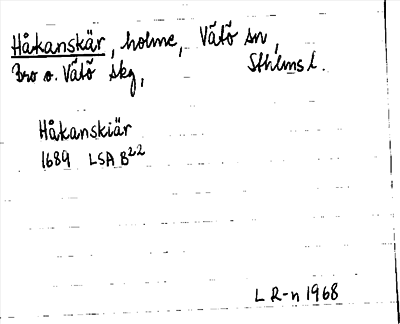 Håkanskär, holme, Vätö sn,
Bro o. Vätö skg, Sthlms l.
Håkanskiär
1689 LSA B22
L R-n 1968